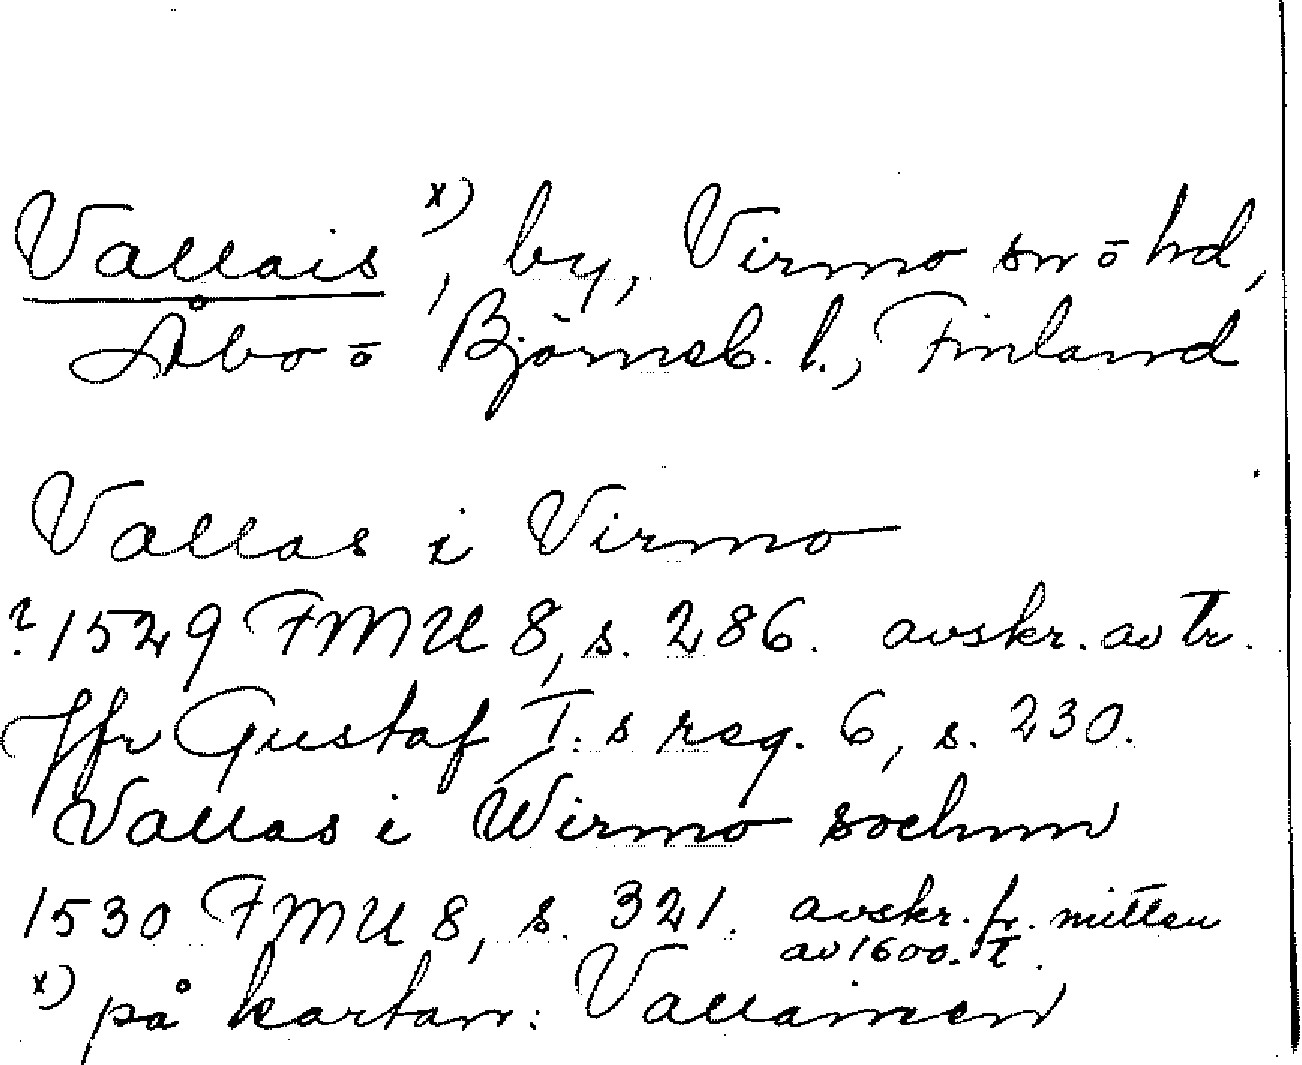 Vallais x), by, Virmo sn o hd,
Åbo o Björneb. l., Finland
Vallas i Virmo
? 1529 FMU 8, s. 286. avskr. av tr.
Jfr Gustaf I.s reg. 6, s. 230.
Vallas i Wirmo sochnn
1530 FMU 8, s. 321. avskr. fr. mitten
av 1600. t.
x) på kartan: Vallainen